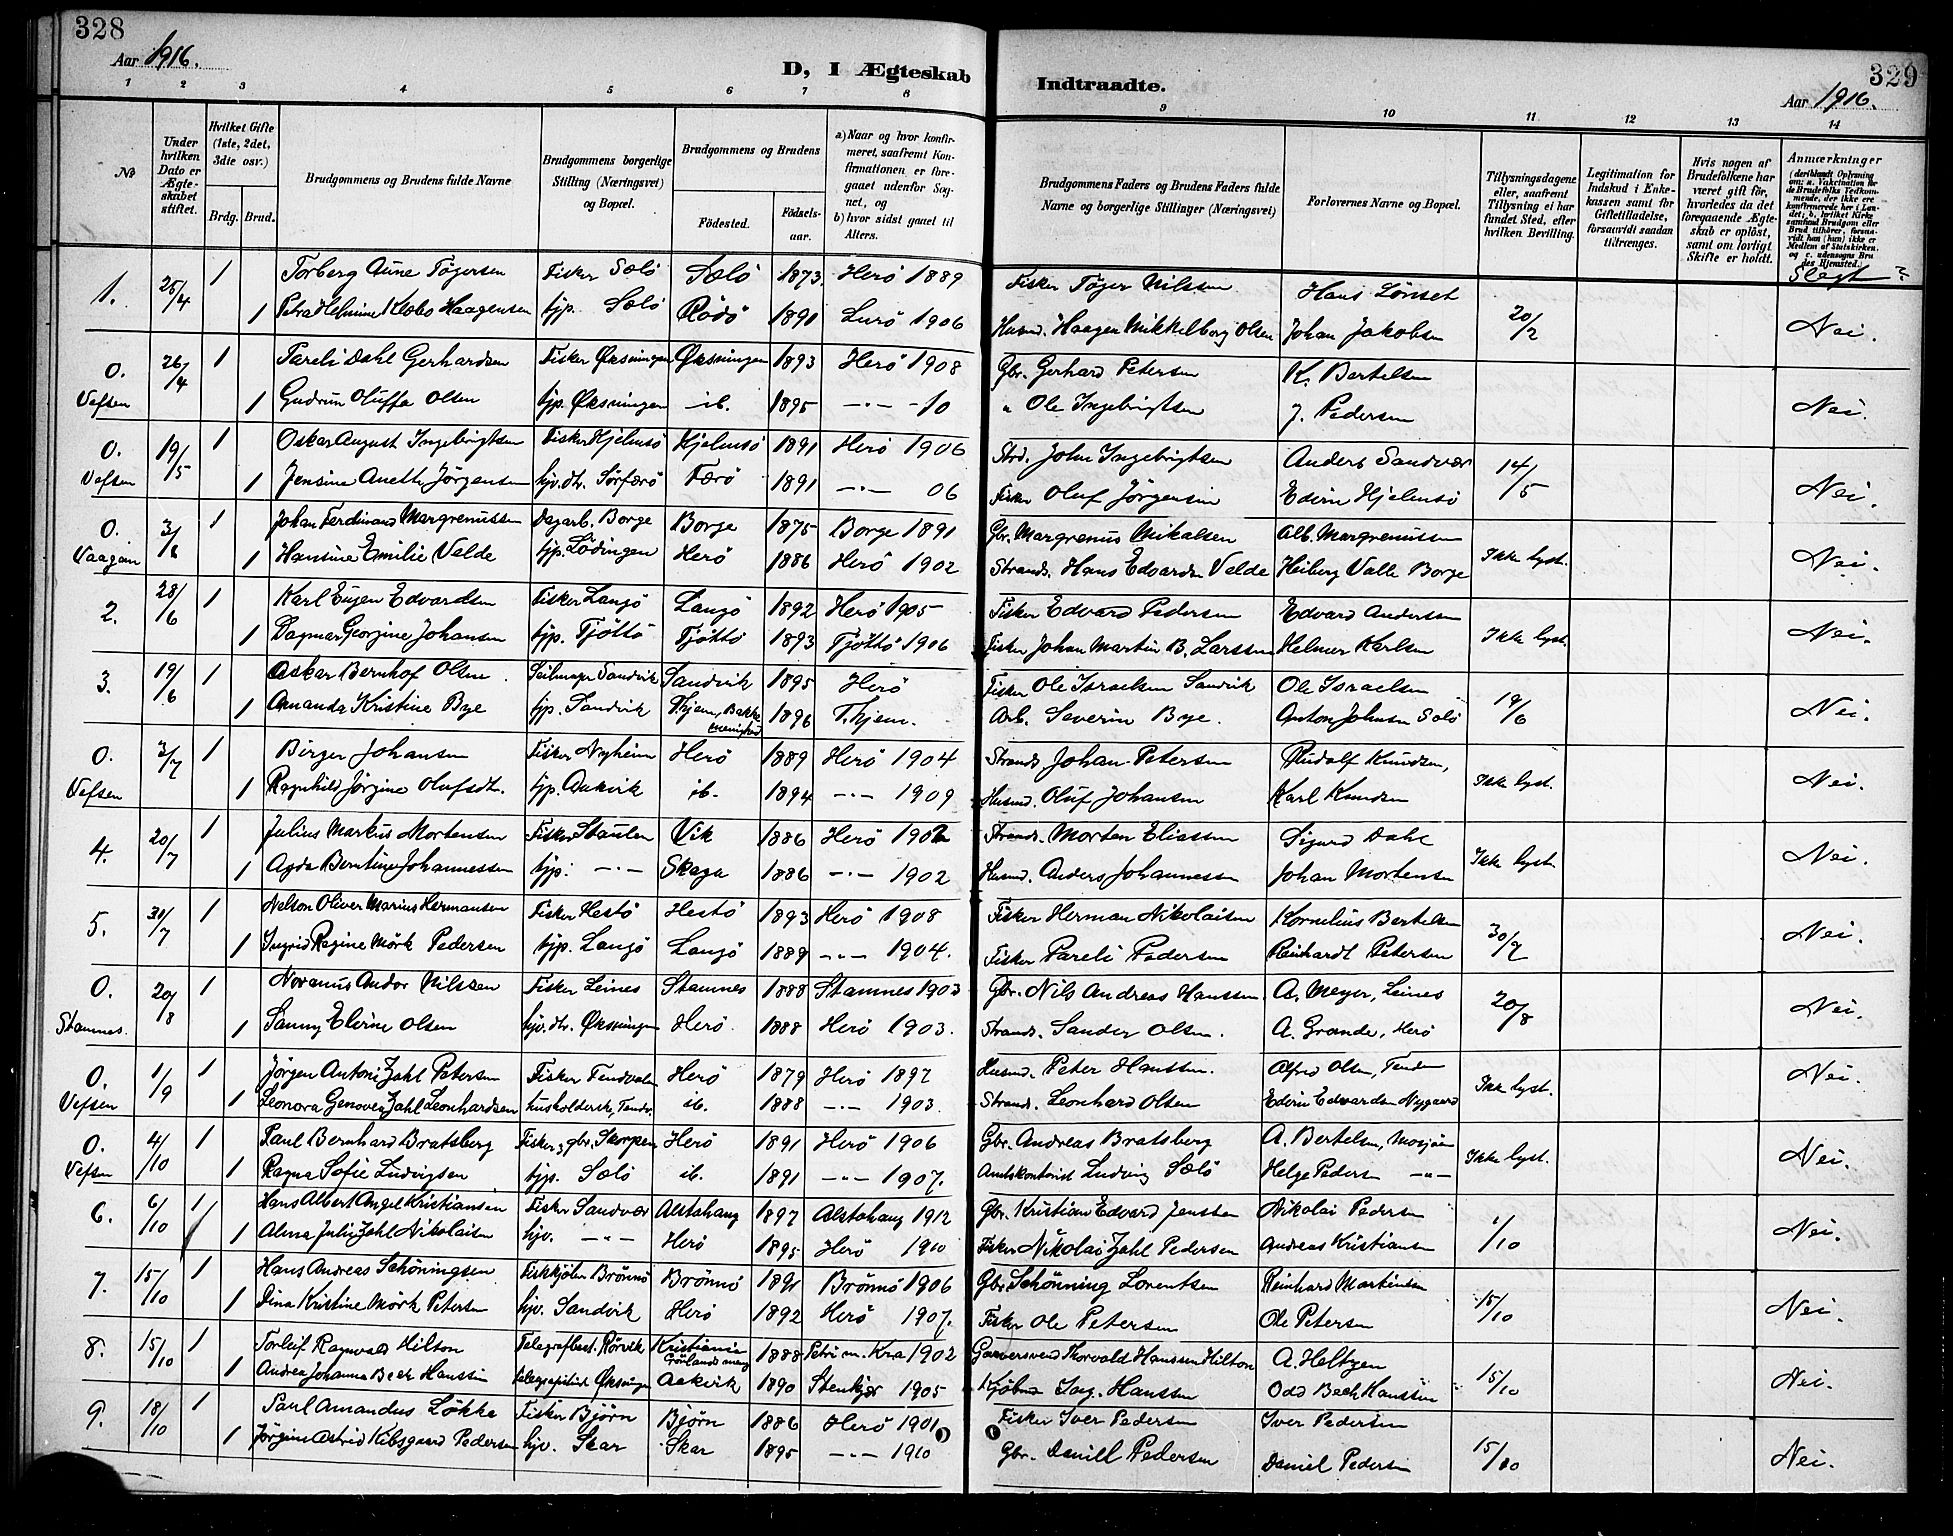 328
Aar 1916.
D, I Ægteskab
Indtraadte.
329
Aar 1916.
1 2 3 4 5 6 7 8 9 10 11 12 13 14
No
Under hvilken Dato er Ægteskabet stiftet.
Hvilket Gifte (1ste, 2det, 3die osv.)
Brdg. Brud.
Brudgommens og Brudens fulde Navne
Brudgommens borgerlige Stilling (Næringsvei) og Bopæl.
Brudgommens og Brudens
Födested. Födselsaar.
a) Naar og hvor konfirmeret, saafremt Konfirmationen er foregaaet udenfor Sognet, og b) hvor sidst gaaet til Alters.
Brudgommens Faders og Brudens Faders fulde Navne og borgerlige Stillinger (Næringsvei)
Forlovernes Navne og Bopæl.
Tillysningsdagene eller, saafremt Tillysning ei har fundet Sted, efter hvilken Bevilling.
Legitimation for Indskud i Enkekassen samt for Giftetilladelse, forsaavidt saadan tiltrænges.
Hvis nogen af Brudefolkene har været gift för, hvorledes da det foregaaende Ægteskab er oplöst, samt om lovligt Skifte er holdt.
Anmærkninger (deriblandt Oplysning om: a. Vakcination for de Brudefolks Vedkommende, der ikke ere konfirmerede her i Landet; b. hvilket Kirkesamfund Brudgom eller Brud tilhörer, forsaavidt han (hun) ikke er Medlem af Statskirken, og c. udensogns Brudes Hjemsted.)
Slegt?
1. 25/4 1 Torberg Aune Tögersen Fisker Sælö Sælö 1873 Herö 1889 Fisker Töger Nilssen Hans Lönset 20/2 Nei.
1 Petra Helmine Klæbo Haagensen tjp. Sælö Rödö 1891 Lurö 1906 Husmd. Haagen Mikkelborg Olsen Johan Jakobsen
0. Vefsen 26/4 1 Pareli Dahl Gerhardsen Fisker Øksningen Øksningen 1893 Herö 1908 Gbr. Gerhard Petersen K. Bertelsen Nei.
1 Gudrun Oluffa Olsen tjp. Øksningen ib. 1895 -"- -10 " Ole Ingebrigtsen J. Pedersen
0. Vefsen 19/5 1 Oskar August Ingebrigtsen Fisker Hjelmsö Hjelmsö 1891 Herö 1906 Strd. John Ingebrigtsen Anders Sandvær 14/5 Nei.
1 Jensine Anette Jörgensen hjv. dtr. Sörfærö Færö 1891 -"- 06 Fisker Oluf Jörgensen Edvin Hjelmsö
0. Vaagan 3/6 1 Johan Ferdinand Margrenussen Dagarb. Borge Borge 1875 Borge 1891 Gbr. Margrenus Mikalsen Alb. Margrenussen Ikke lyst. Nei.
1 Hansine Emilie Valde tjp. Lödingen Herö 1886 Herö 1902 Strands. Hans Edvardsen Valde Heiberg Valle Borge
2. 28/6 1 Karl Eugen Edvardsen Fisker Langö Langö 1892 Herö 1905 Fisker Edvard Pedersen Edvard Andersen Ikke lyst. Nei.
1 Dagmar Georgine Johansen tjp. Tjöttö Tjöttö 1893 Tjöttö 1906 Fisker Johan Martin B. Larssen Helmer Karlsen
3. 19/6 1 Oskar Bernhof Olsen Seilmager Sandvik Sandvik 1895 Herö Fisker Ole Israelsen Sandvik Ole Israelsen 19/6 Nei.
1 Amanda Kristine Bye tjp. Sandvik T.hjem, Bakke menighed 1896 T.hjem. Arb. Severin Bye. Anton Johnsen Sölö
0. Vefsen 3/7 1 Birger Johansen Fisker Nyheim Herö 1889 Herö 1904 Strands. Johan Petersen Rudolf Knudsen, Ikke lyst. Nei.
1 Ragnhild Jörgine Olufsdt. tjp. Aakvik ib. 1894 -"- 1909 Husmd. Oluf Johansen Karl Knudsen
4. 20/7 1 Julius Markus Mortensen Fisker Staulen Vik 1886 Herö 1902 Strands. Morten Eliassen Sigurd Dahl Ikke lyst. Nei.
1 Agda Berntine Johannessen tjp. -"- Skaga 1886 -"- 1902 Husmd. Anders Johannessen Johan Mortensen
5. 30/7 1 Nelson Oliver Marius Hermansen Fisker Hestö Hestö 1893 Herö 1908 Fisker Herman Nikolaisen Kornelius Bertelsen 30/7 Nei.
1 Ingrid Regine Mörk Pedersen tjp. Langö Langö 1889 -"- 1904. Fisker Pareli Pedersen Reinhardt Petersen
0. Stamnes. 20/8 1 Noranus Andor Nilssen Fisker Leines Stamnes 1888 Stamnes 1903 Gbr. Nils Andreas Hanssen A. Meyer, Leines 20/8 Nei.
1 Sanny Elvine Olsen hjv. dtr. Øksningen Herö. 1888 Herö 1903. Strands. Sander Olsen. A. Grande, Herö
0. Vefsen 1/9 1 Jörgen Antoni Zahl Petersen Fisker Tendvalen Herö 1879 Herö 1897 Husmd. Peter Hanssen. Alfred Olsen, Tenden Ikke lyst. Nei.
1 Leonora Genovea Zahl Leonhardsen husholderske, Tendv. ib. 1888 -"- 1903. Strands. Leonhard Olsen Edvin Edvardsen Nygaard
0. Vefsen 4/10 1 Paul Bernhard Bratsberg Fisker, gbr. Skorpen Herö 1891 Herö 1906 Gbr. Andreas Bratsberg A. Bertelsen, Mosjöen Ikke lyst. Nei.
1 Ragna Sofie Ludvigsen tjp. Sælö ib. 1891 -"- 1907. Amtskontorist Ludvig Sælö Helge Pedersen -"-
6. 6/10 1 Hans Albert Angel Kristiansen Fisker Sandvær Alstahaug 1897 Alstahaug 1912 Gbr. Kristian Edvard Jenssen Nikolai Pedersen 1/10 Nei.
1 Alma Julie Zahl Nikolaisen hjv. -"- Herö 1895 Herö 1910 Fisker Nikolai Zahl Pedersen Andreas Kristiansen
7. 15/10 1 Hans Andreas Schöningsen Fiskkjöber Brönnö Brönnö 1891 Brönnö 1906 Gbr. Schönning Lorentsen Reinhard Martinsen 15/10 Nei.
1 Dina Kristine Mörk Petersen hjv. Sandvik Herö 1892 Herö 1907. Fisker Ole Petersen Ole Petersen
8. 15/10 1 Torleif Ragnvald Hilton Telegrafbest. Rörvik Kristiania Grönlands meng 1888 Petri m. Kra 1902 Garversvend Thorvald Hanssen Hilton A. Heltzen 15/10 Nei.
1 Andrea Johanna Bech Hanssen telegrafistinde Øksningen Aakvik 1890 Stenkjær 1905 Kjöbmd. Hanssen Odd Bech Hanssen
9. 18/10 1 Paul Amandus Lökke Fisker Björn Björn 1886 Herö 1901 Fisker Iver Pedersen Iver Pedersen 15/10 Nei.
1 Jörgine Astrid Kibsgaard Pedersen hjv. Skar Skar 1895 -"- 1910 Gbr. Daniell Pedersen Daniel Pedersen